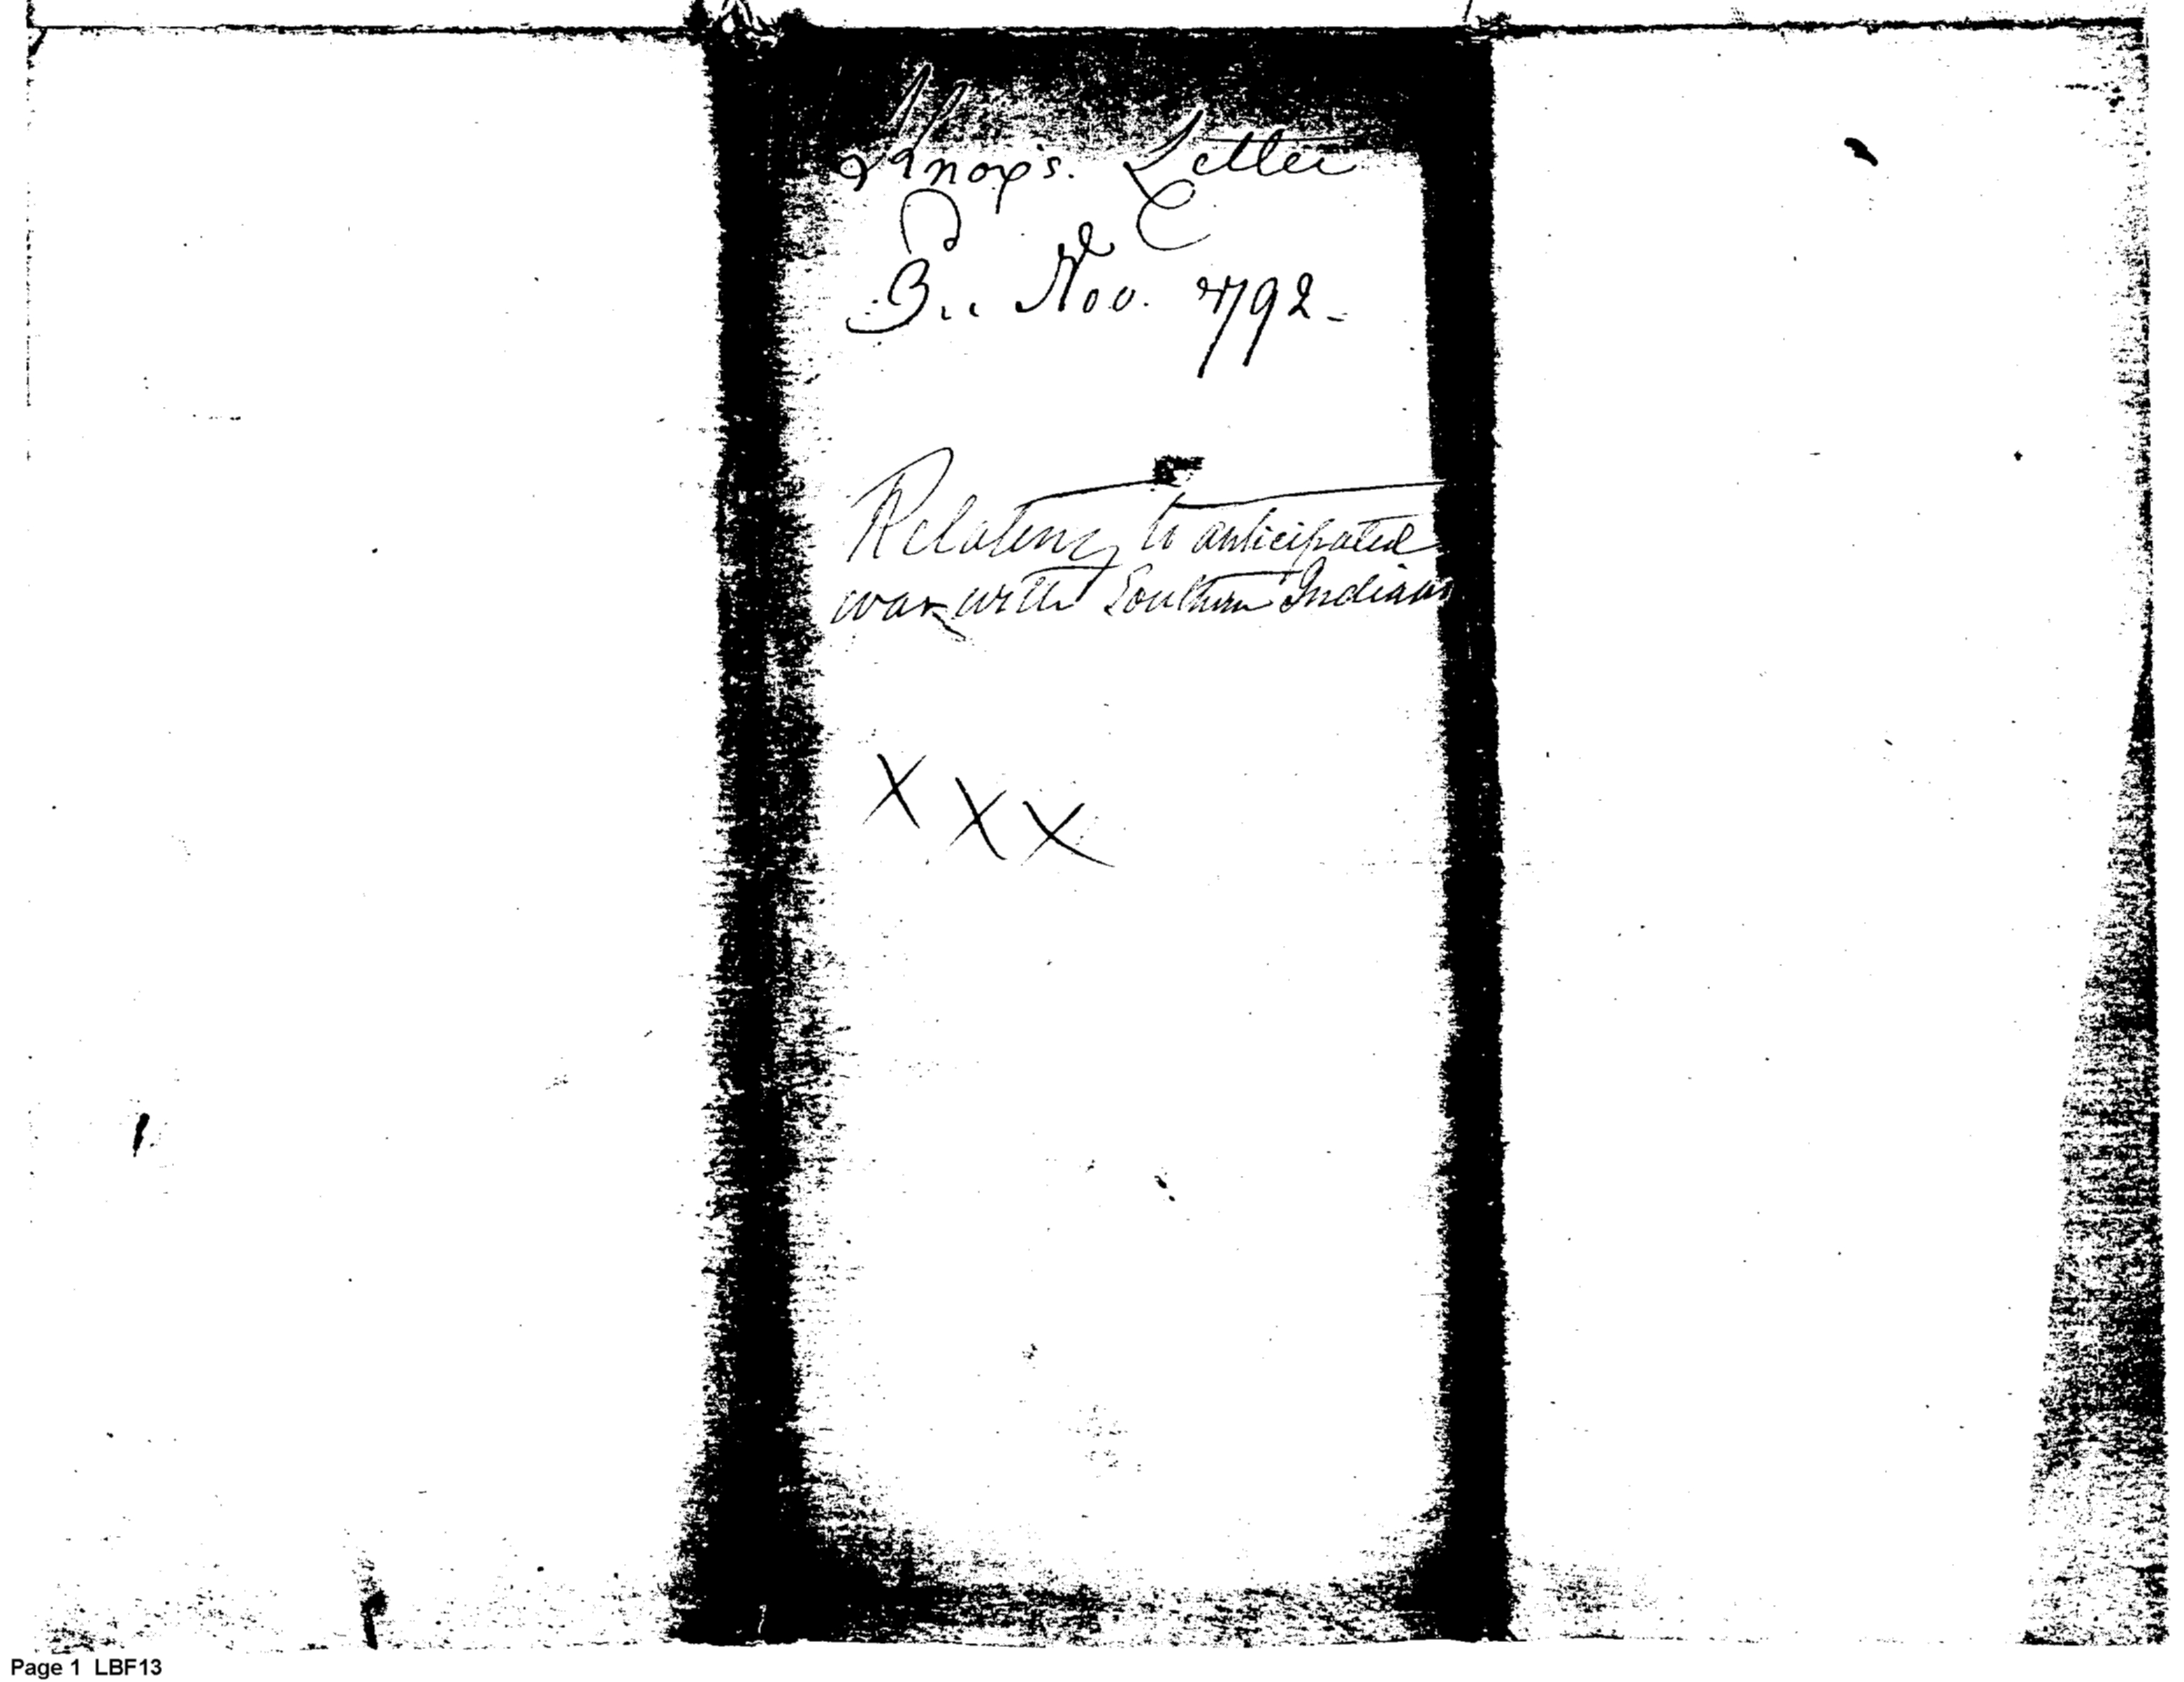 Knox's. Letter
3.. Nov. 1792-
Relating to anticipated
war with Southern Indians
X X X
Page 1 LBF13